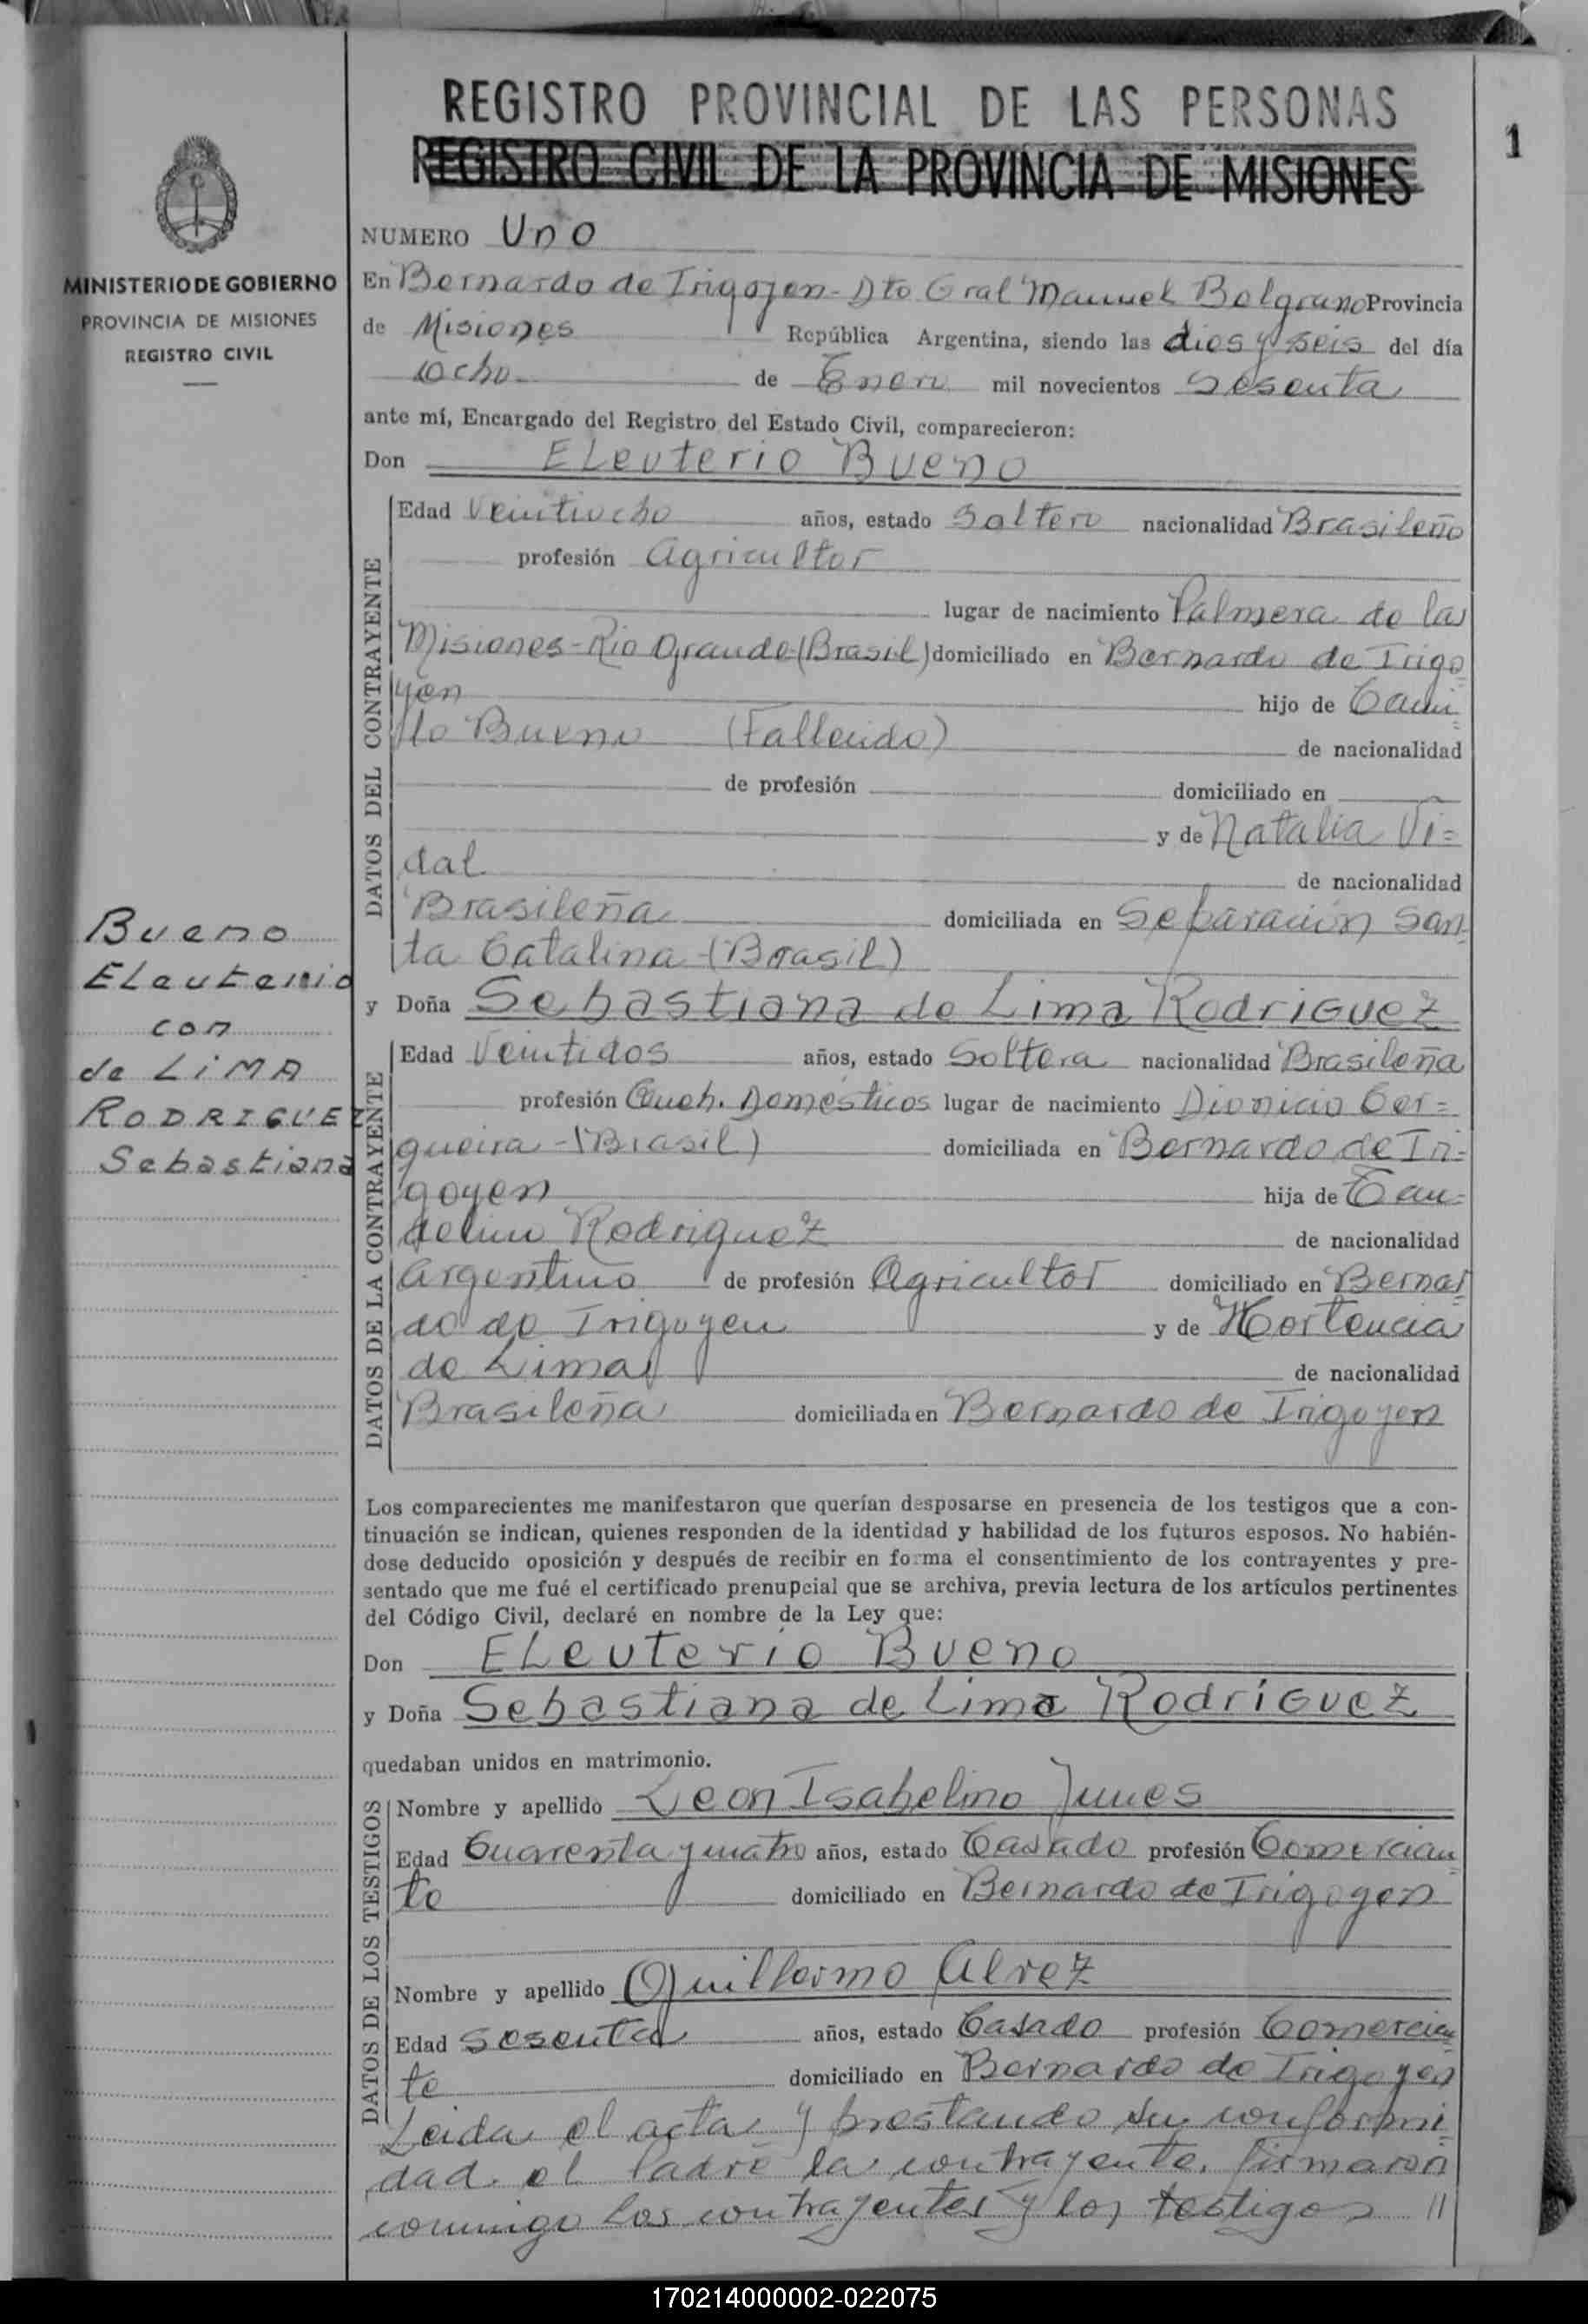 REGISTRO PROVINCIAL DE LAS PERSONAS
REGISTRO CIVIL DE LA PROVINCIA DE MISIONES
1
MINISTERIO DE GOBIERNO
PROVINCIA DE MISIONES
REGISTRO CIVIL
NUMERO Uno
En Bernardo de Irigoyen - Dto Gral Manuel Belgrano Provincia
de Misiones República Argentina, siendo las dies y seis del día
ocho de Enero mil novecientos Sesenta
ante mí, Encargado del Registro del Estado Civil, comparecieron:
Don ELeuterio Bueno
DATOS DEL CONTRAYENTE
Edad Veintiocho años, estado Soltero nacionalidad Brasileño
profesión Agricultor
lugar de nacimiento Palmera de las
Misiones - Rio Grande - (Brasil) domiciliado en Bernardo de Irigo
yen hijo de Cami
lo Bueno (Fallecido) de nacionalidad
de profesión domiciliado en
y de Natalia Vi=
dal de nacionalidad
Brasileña domiciliada en Separación San
ta Catalina - (Brasil)
Bueno
ELeuterio
con
de LiMA
RODRIGUEZ
Sebastiana
y Doña Sebastiana de Lima RodriGuez
DATOS DE LA CONTRAYENTE
Edad Veintidos años, estado Soltera nacionalidad Brasileña
profesión Queh. Domésticos lugar de nacimiento Dionicio Cer=
queira - (Brasil) domiciliada en Bernardo de Iri=
goyen hija de Cau=
delino Rodriguez de nacionalidad
Argentino de profesión Agricultor domiciliado en Bernar
do de Irigoyen y de Hortencia
de Lima de nacionalidad
Brasileña domiciliada en Bernardo de Irigoyen
Los comparecientes me manifestaron que querían desposarse en presencia de los testigos que a con-
tinuación se indican, quienes responden de la identidad y habilidad de los futuros esposos. No habién-
dose deducido oposición y después de recibir en forma el consentimiento de los contrayentes y pre-
sentado que me fué el certificado prenupcial que se archiva, previa lectura de los artículos pertinentes
del Código Civil, declaré en nombre de la Ley que:
Don ELeuterio Bueno
y Doña Sebastiana de Lima RodríGuez
quedaban unidos en matrimonio.
DATOS DE LOS TESTIGOS
Nombre y apellido Leon Isabelino Junes
Edad Cuarenta y cuatro años, estado Casado profesión Comercian
te domiciliado en Bernardo de Irigoyen
Nombre y apellido Guillermo Alvez
Edad Sesenta años, estado Casado profesión Comercian
te domiciliado en Bernardo de Irigoyen
Leida el acta y prestando su conformi
dad el Padre la contrayente, firmaron
conmigo los contrayentes y los testigos //
170214000002-022075